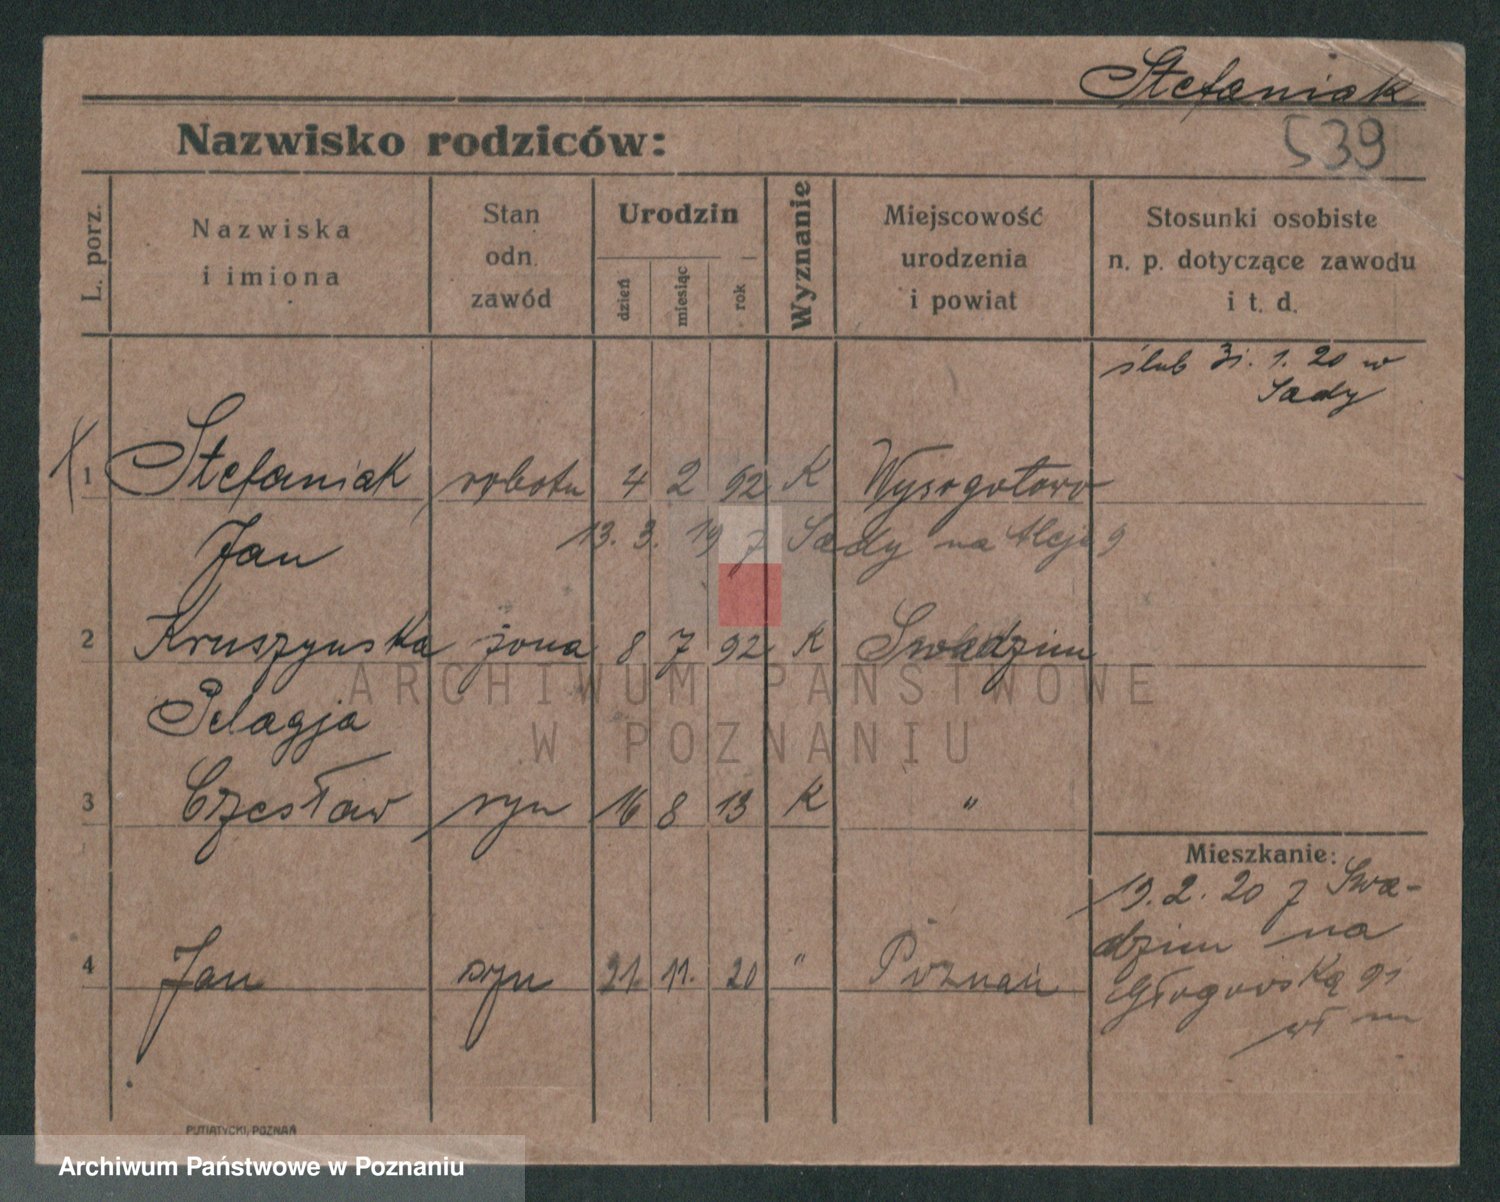 Stefaniak
539
Nazwisko rodziców:
L. porz.
Nazwiska
i imiona
Stan
odn.
zawód
Urodzin
dzień
miesiąc
rok
Wyznanie
Miejscowość
urodzenia
i powiat
Stosunki osobiste
n. p. dotyczące zawodu
i t. d.
ślub 31. 1. 20 w
Sady
1 Stefaniak robotn 4 2 92 K Wysogotowo
Jan 13. 3. 19 z Sady na 9
2 Kruszynska żona 8 7 92 K Swadzim
Pelagja
3 Czesław syn 16 8 13 K "
Mieszkanie:
19. 2. 20 z Swa-
dzim na
Głogowską 91
4 Jan syn 21. 11. 20 " Poznań
PUTIATYCKI, POZNAŃ
ARCHIWUM PAŃSTWOWE
W POZNANIU
Archiwum Państwowe w Poznaniu